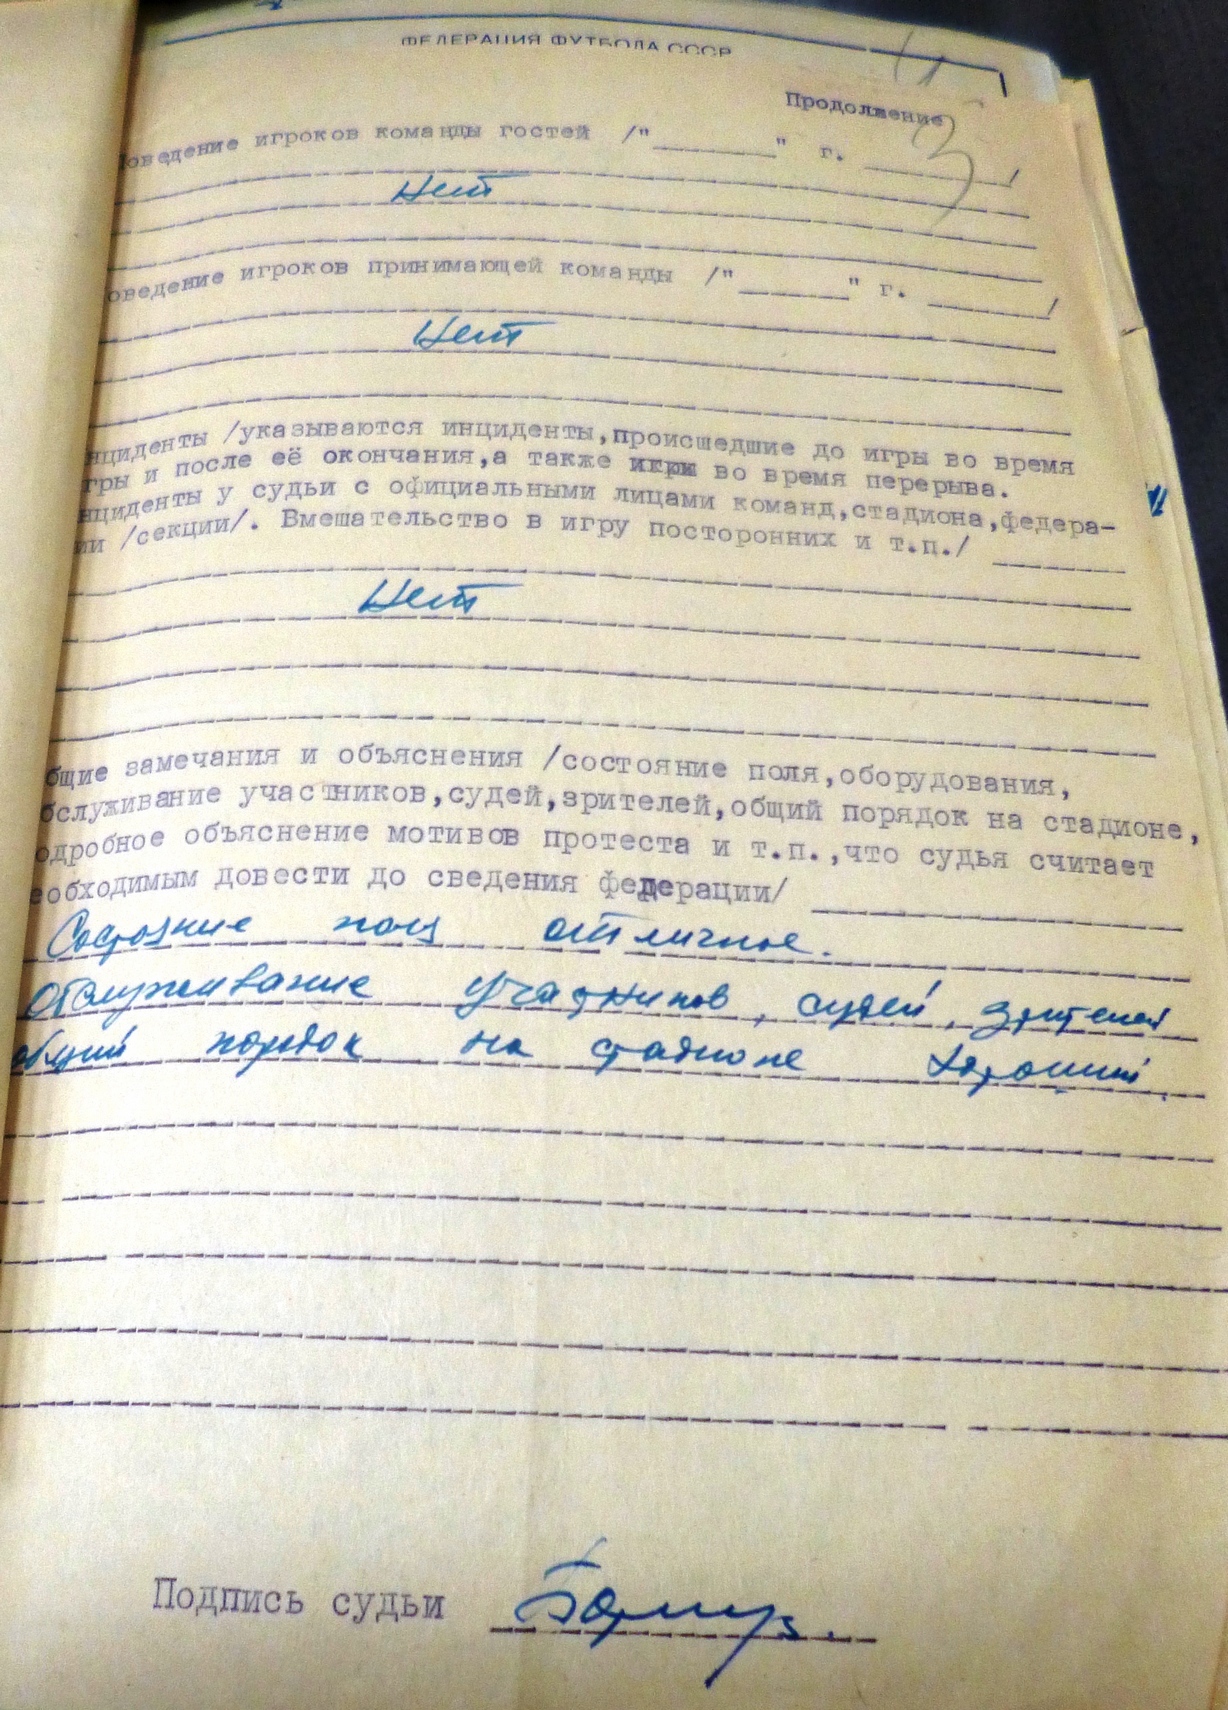 ФЕДЕРАЦИЯ ФУТБОЛА СССР
Продолжение
3
Поведение игроков команды гостей /"________" г. ________/
Нет
оведение игроков принимающей команды /"________" г. ________/
Нет
нциденты /указываются инциденты,происшедшие до игры во время
гры и после её окончания,а также игры во время перерыва.
нциденты у судьи с официальными лицами команд,стадиона,федера-
ии /секции/. Вмешательство в игру посторонних и т.п./ ________
Нет
бщие замечания и объяснения /состояние поля,оборудования,
бслуживание участников,судей,зрителей,общий порядок на стадионе,
одробное объяснение мотивов протеста и т.п.,что судья считает
еобходимым довести до сведения федерации/ ________
Состояние поля отличное.
Обслуживание участников, судей, зрителей
общий порядок на стадионе хороший.
Подпись судьи